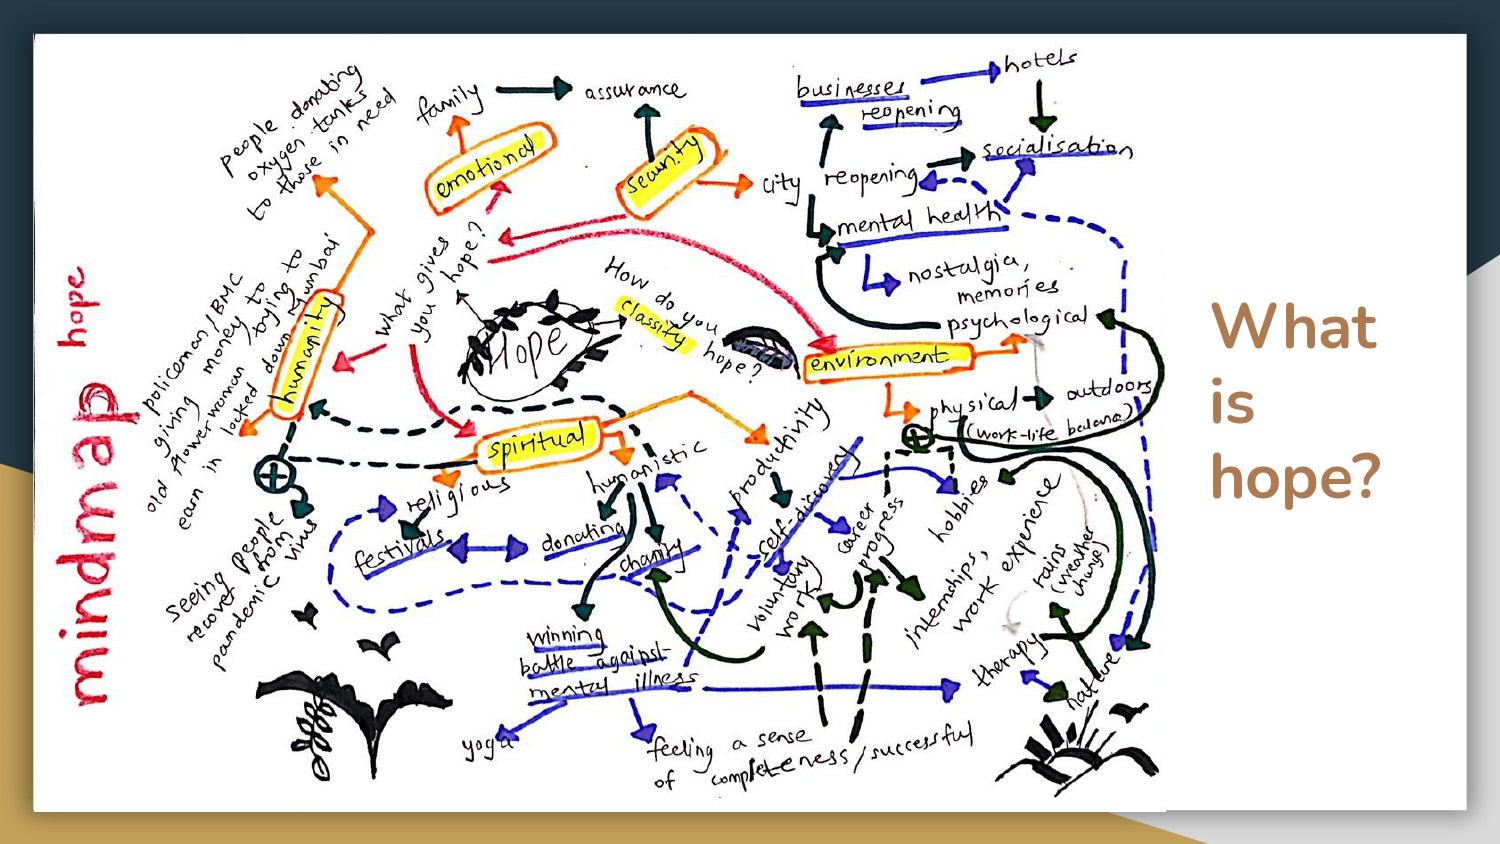 mindmap hope
people donating
oxygen tanks
to those in need
family
assurance
emotional
security
city
reopening
businesses
reopening
hotels
socialisation
mental health
nostalgia,
memories
psychological
what gives
you hope?
Hope
How do you
classify
hope?
environment
physical
outdoors
(work-life balance)
humanity
policeman/BMC
giving money to
old flower woman trying to
earn in locked down Mumbai
spiritual
religious
humanistic
productivity
festivals
donating
charity
self-discovery
career
progress
hobbies
voluntary
work
internships,
work experience
rains
(weather
change)
seeing people
recover from
pandemic virus
winning
battle against
mental illness
therapy
nature
yoga
feeling a sense
of completeness/successful
What
is
hope?